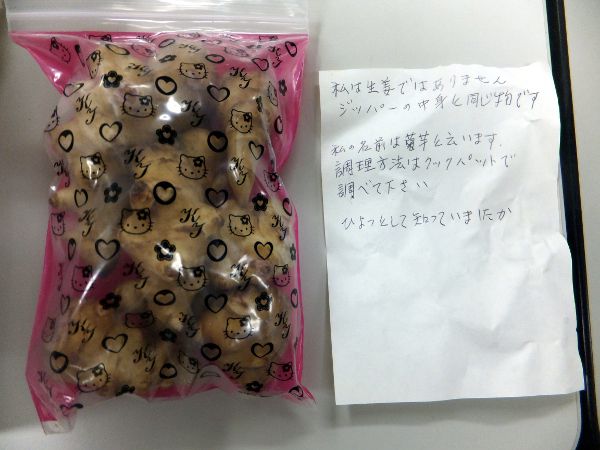 私は生姜ではありません
ジッパーの中身と同じ物です
私の名前は菊芋と云います.
調理方法はクックパットで
調べて下さい
ひょっとして知っていましたか